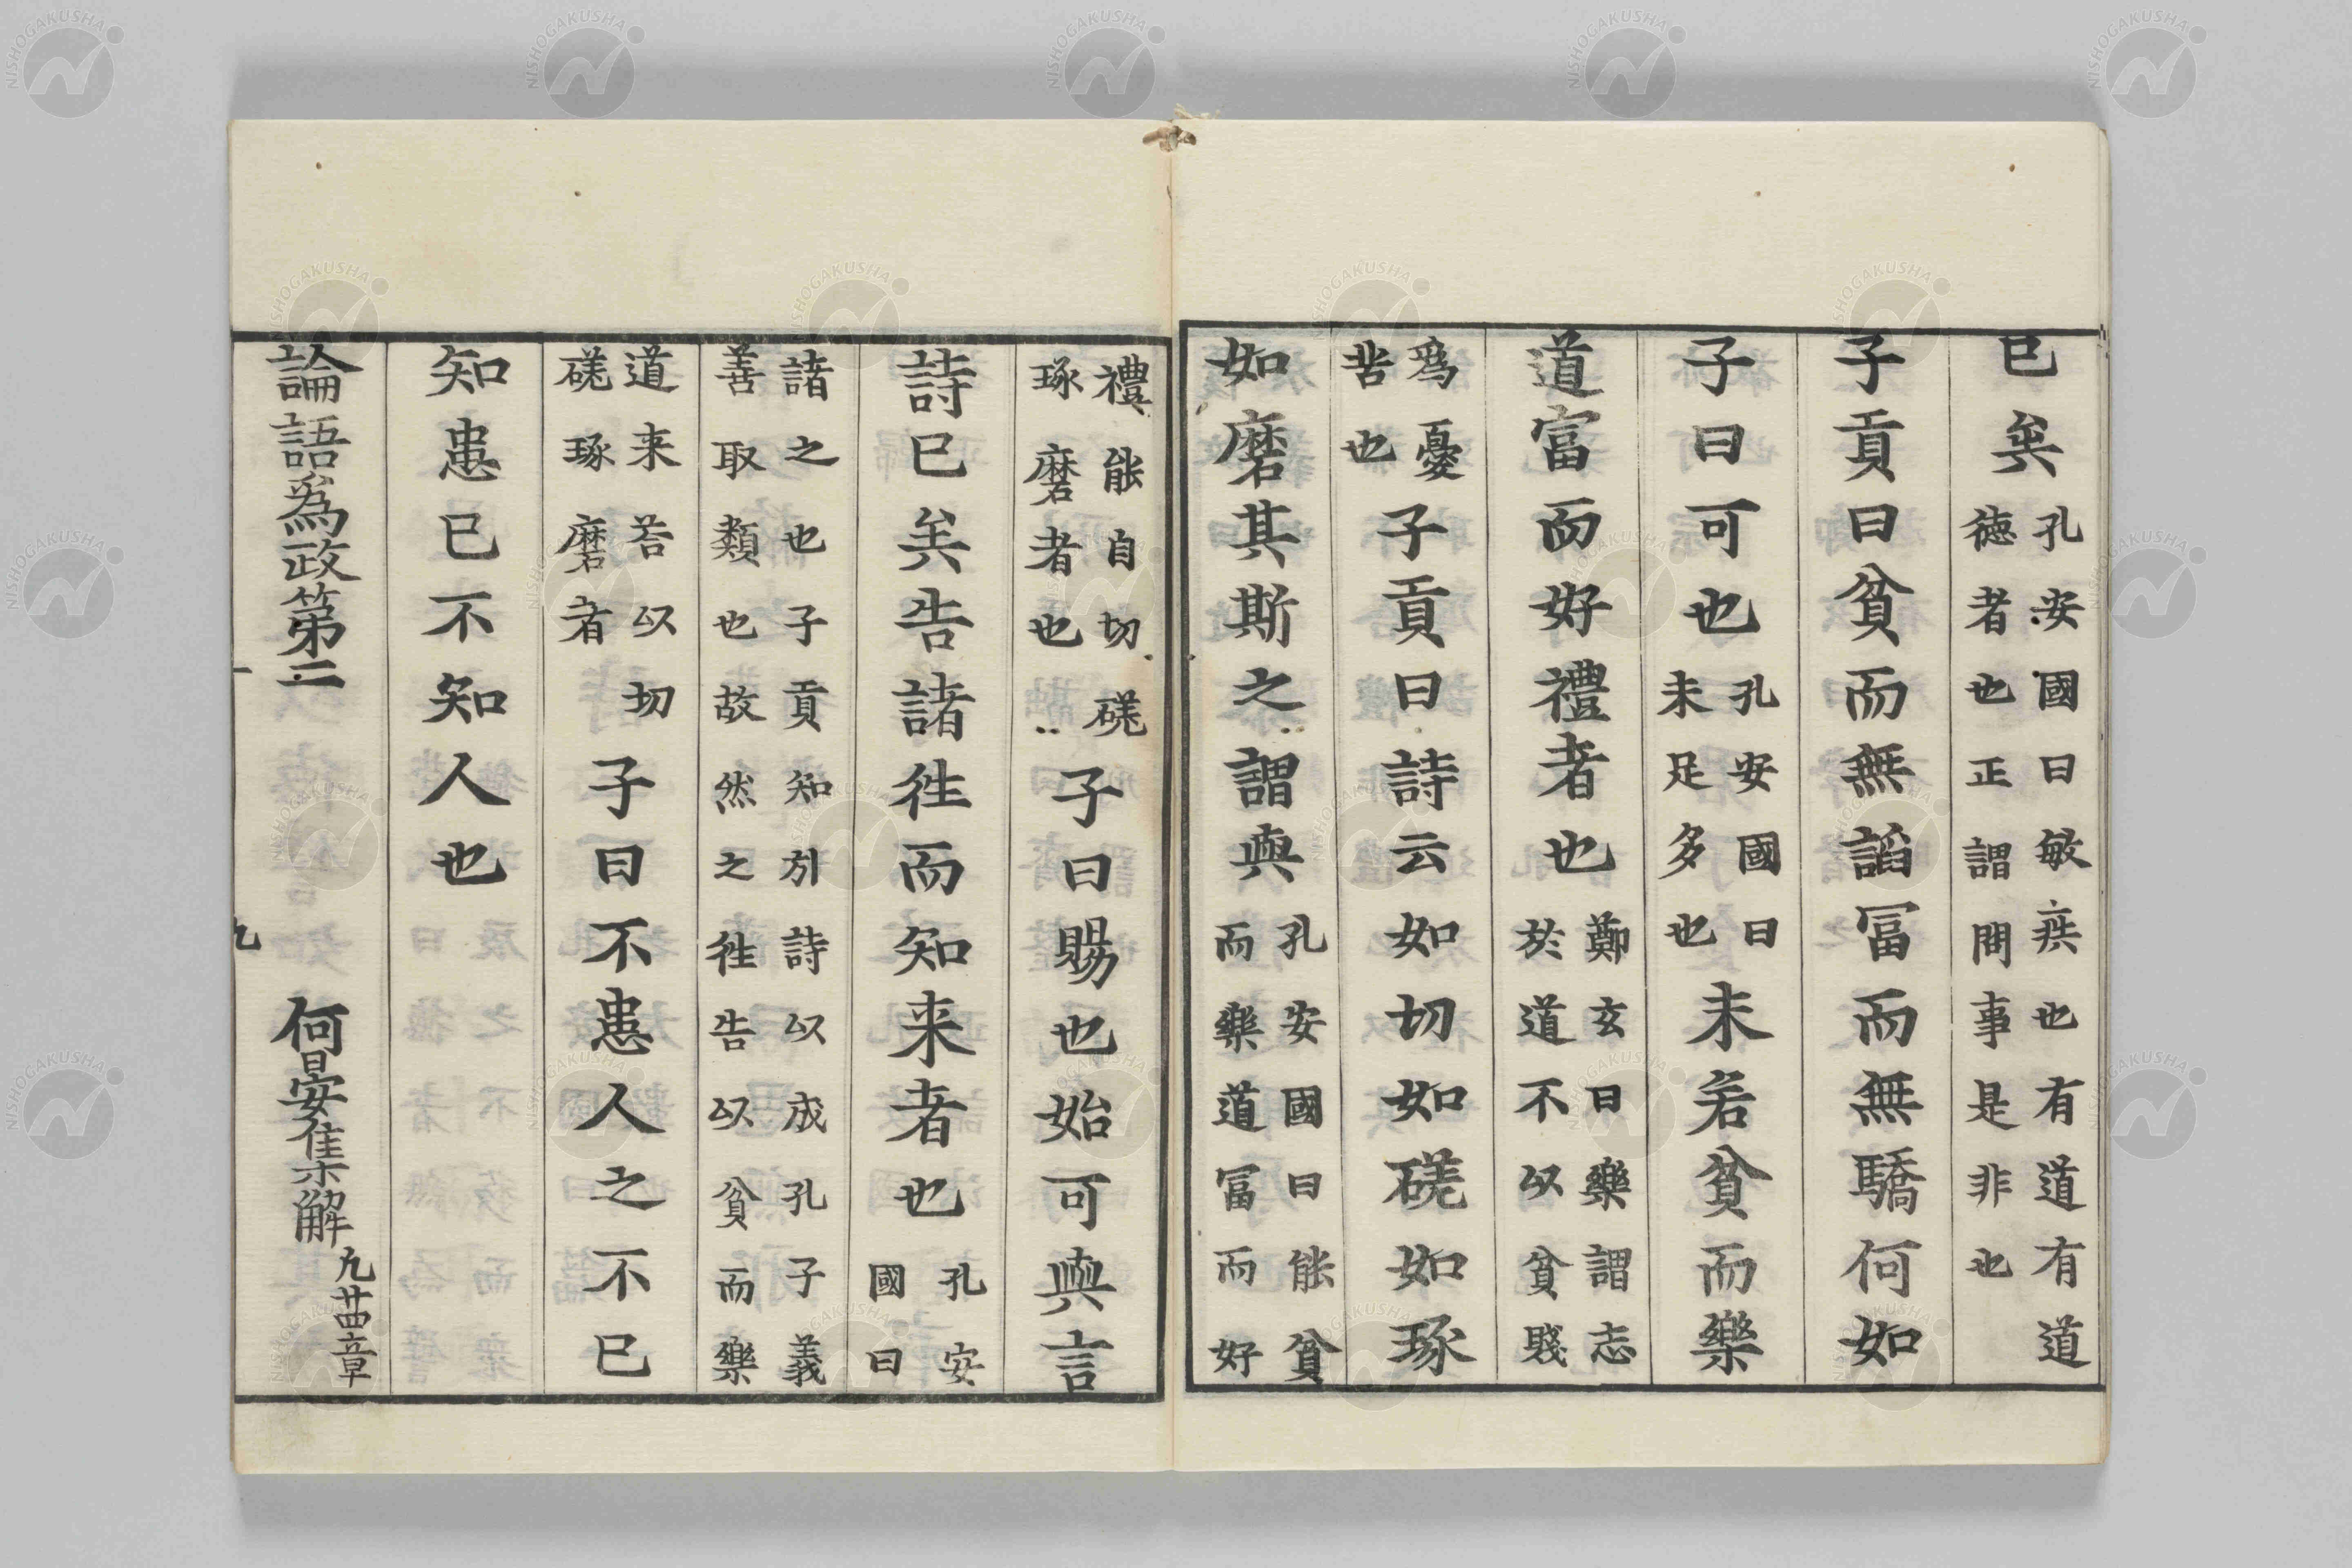 已矣孔安國曰敏疾也有道有道德者也正謂問事是非也
子貢曰貧而無謟冨而無驕何如
子曰可也孔安國曰未足多也未若貧而樂
道富而好禮者也鄭玄曰樂謂志於道不以貧賤
爲憂苦也子貢曰詩云如切如磋如琢
如磨其斯之謂與孔安國曰能貧而樂道冨而好
禮能自切磋琢磨者也子曰賜也始可與言
詩已矣告諸徃而知来者也孔安國曰
諸之也子貢知引詩以成孔子義善取類也故然之徃告以貧而樂
道来荅以切磋琢磨者子曰不患人之不已
知患已不知人也
論語爲政第二 何晏集解凡廿四章
九
NISHOGAKUSHA